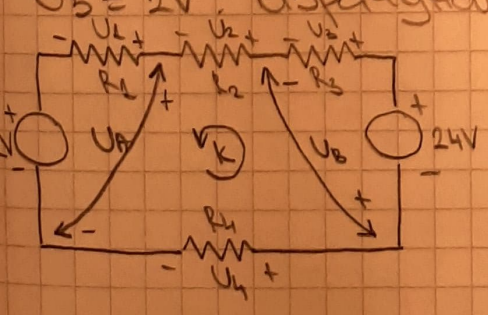 U1 U2 U3
- + - + - +
R1 R2 R3
+ + - +
V UA K UB 24V
- + -
-
R4
- U4 +